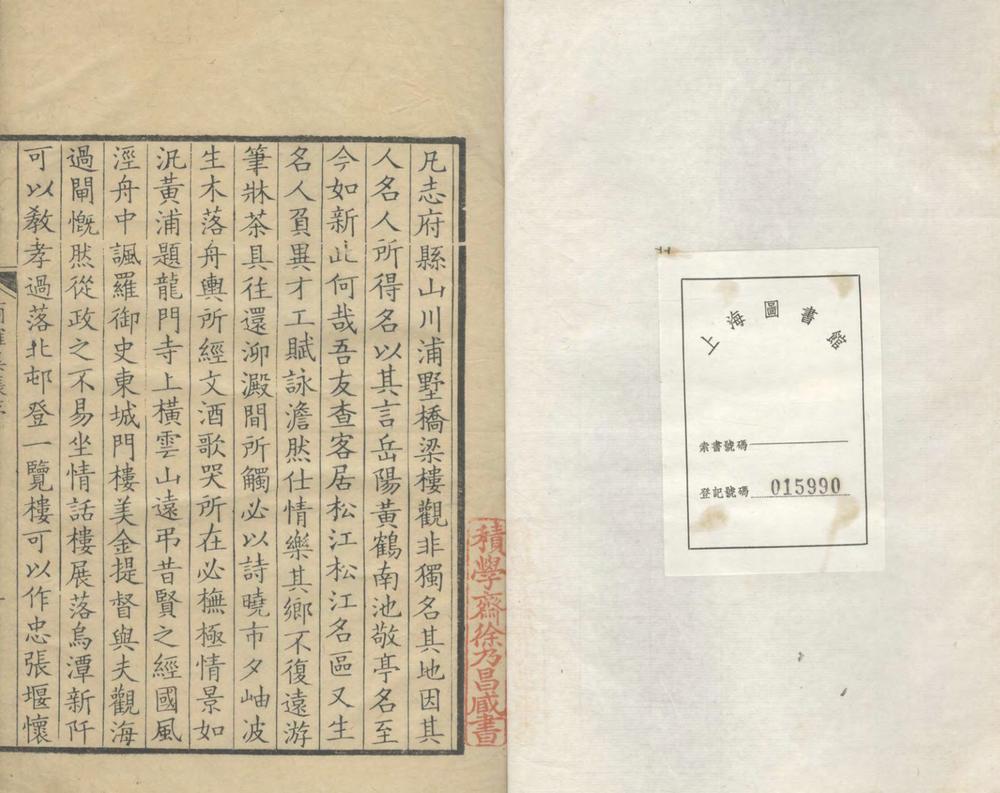 上海圖書館
索書號碼
登記號碼 015990
凡志府縣山川浦墅橋梁樓觀非獨名其地因其
人名人所得名以其言岳陽黃鶴南池敬亭名至
今如新此何哉吾友查客居松江松江名區又生
名人負異才工賦詠澹然仕情樂其鄉不復遠游
筆牀茶具往還泖澱間所觸必以詩曉市夕岫波
生木落舟輿所經文酒歌哭所在必橅極情景如
汎黃浦題龍門寺上橫雲山遠弔昔賢之經國風
涇舟中諷羅御史東城門樓美金提督與夫觀海
過閘慨然從政之不易坐情話樓展落烏潭新阡
可以敎孝過落北邨登一覽樓可以作忠張堰懷
積學齋徐乃昌臧書